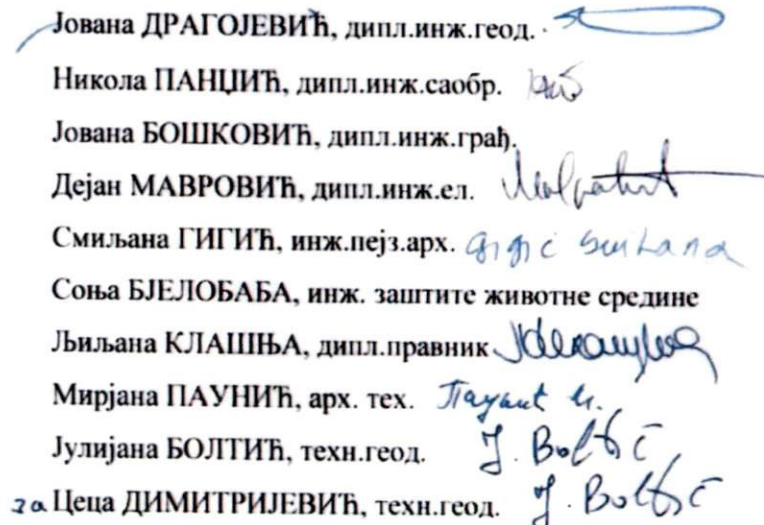 Јована ДРАГОЈЕВИЋ, дипл.инж.геод.
Никола ПАНЏИЋ, дипл.инж.саобр.
Јована БОШКОВИЋ, дипл.инж.грађ.
Дејан МАВРОВИЋ, дипл.инж.ел.
Смиљана ГИГИЋ, инж.пејз.арх.
Соња БЈЕЛОБАБА, инж. заштите животне средине
Љиљана КЛАШЊА, дипл.правник
Мирјана ПАУНИЋ, арх. тех. Паунић М.
Јулијана БОЛТИЋ, техн.геод. J. Boltić
за Цеца ДИМИТРИЈЕВИЋ, техн.геод. J. Boltić